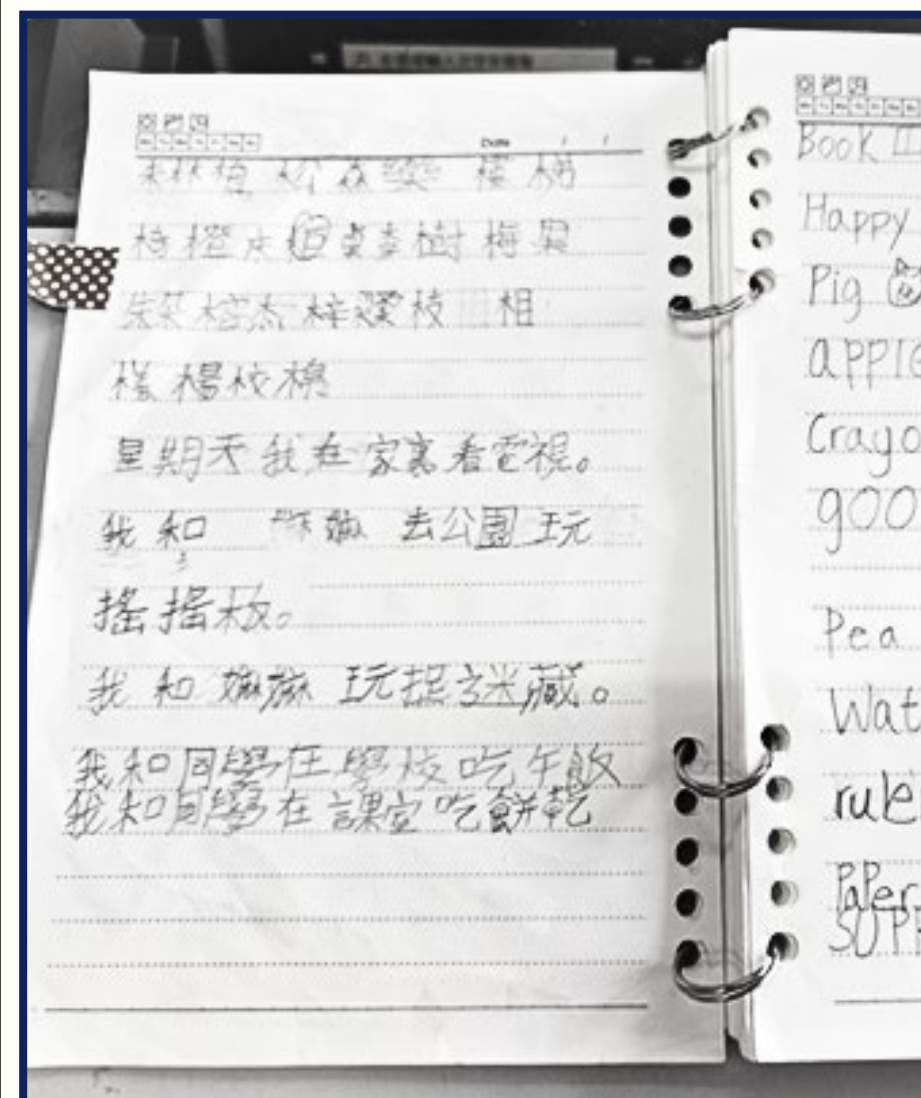 Date / /
林 松 森 樂 樣 梯
橙 木 桌 李 樹 梅 果
朵 榕 杰 梓 枝 相
樣 楊 校 棉
星期天我在家裏看電視。
我和 嫲嫲 去公園玩
搖搖板。
我和嫲嫲玩捉迷藏。
我和同學在學校吃午飯
我和同學在課室吃餅乾
Book
Happy
Pig
apple
Crayo
goo
Pea
Wat
rule
Paper
SUP